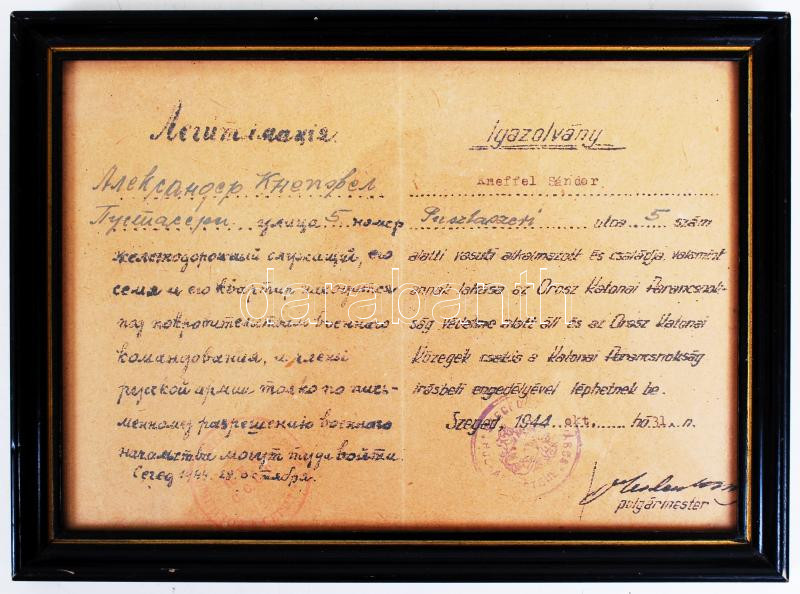 Легитімація
Александер Кнепфел
Пустасери улица 5 номер
железнодорожный служищий, его
семя и его квартир находится
под покровительством военного
командования, и члены
русской армии толко по пись-
менному разрешению военного
начальства могут туда войти.
Сегед 1944. 28. октября.
Igazolvány
Kneffel Sándor
Pusztaszeri utca 5 szám
alatti vasuti alkalmazott és családja valamint
annak lakása az Orosz Katonai Parancsnok-
ság védelme alatt áll és az Orosz Katonai
Közegek csakis a Katonai Parancsnokság
irásbeli engedélyével léphetnek be.
Szeged, 1944 okt. hó 31 n.
polgármester
darabanth